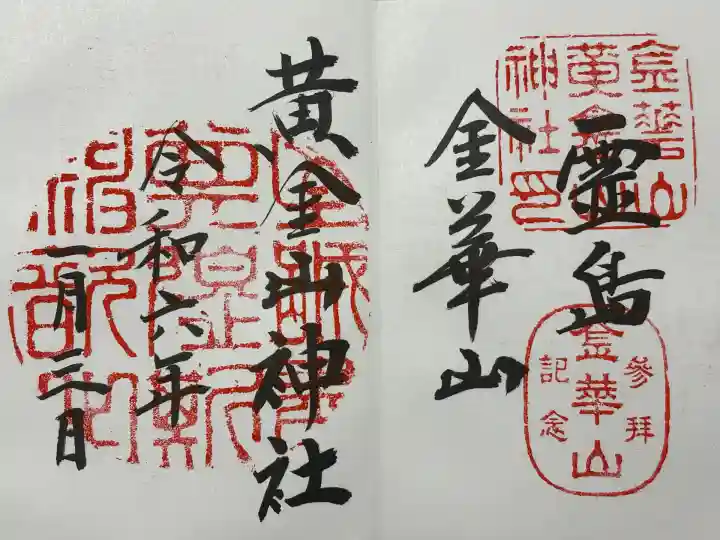 霊島
金華山
金華山
黄金山
神社印
参拝
金華山
記念
黄金山神社
令和六年
一月三日